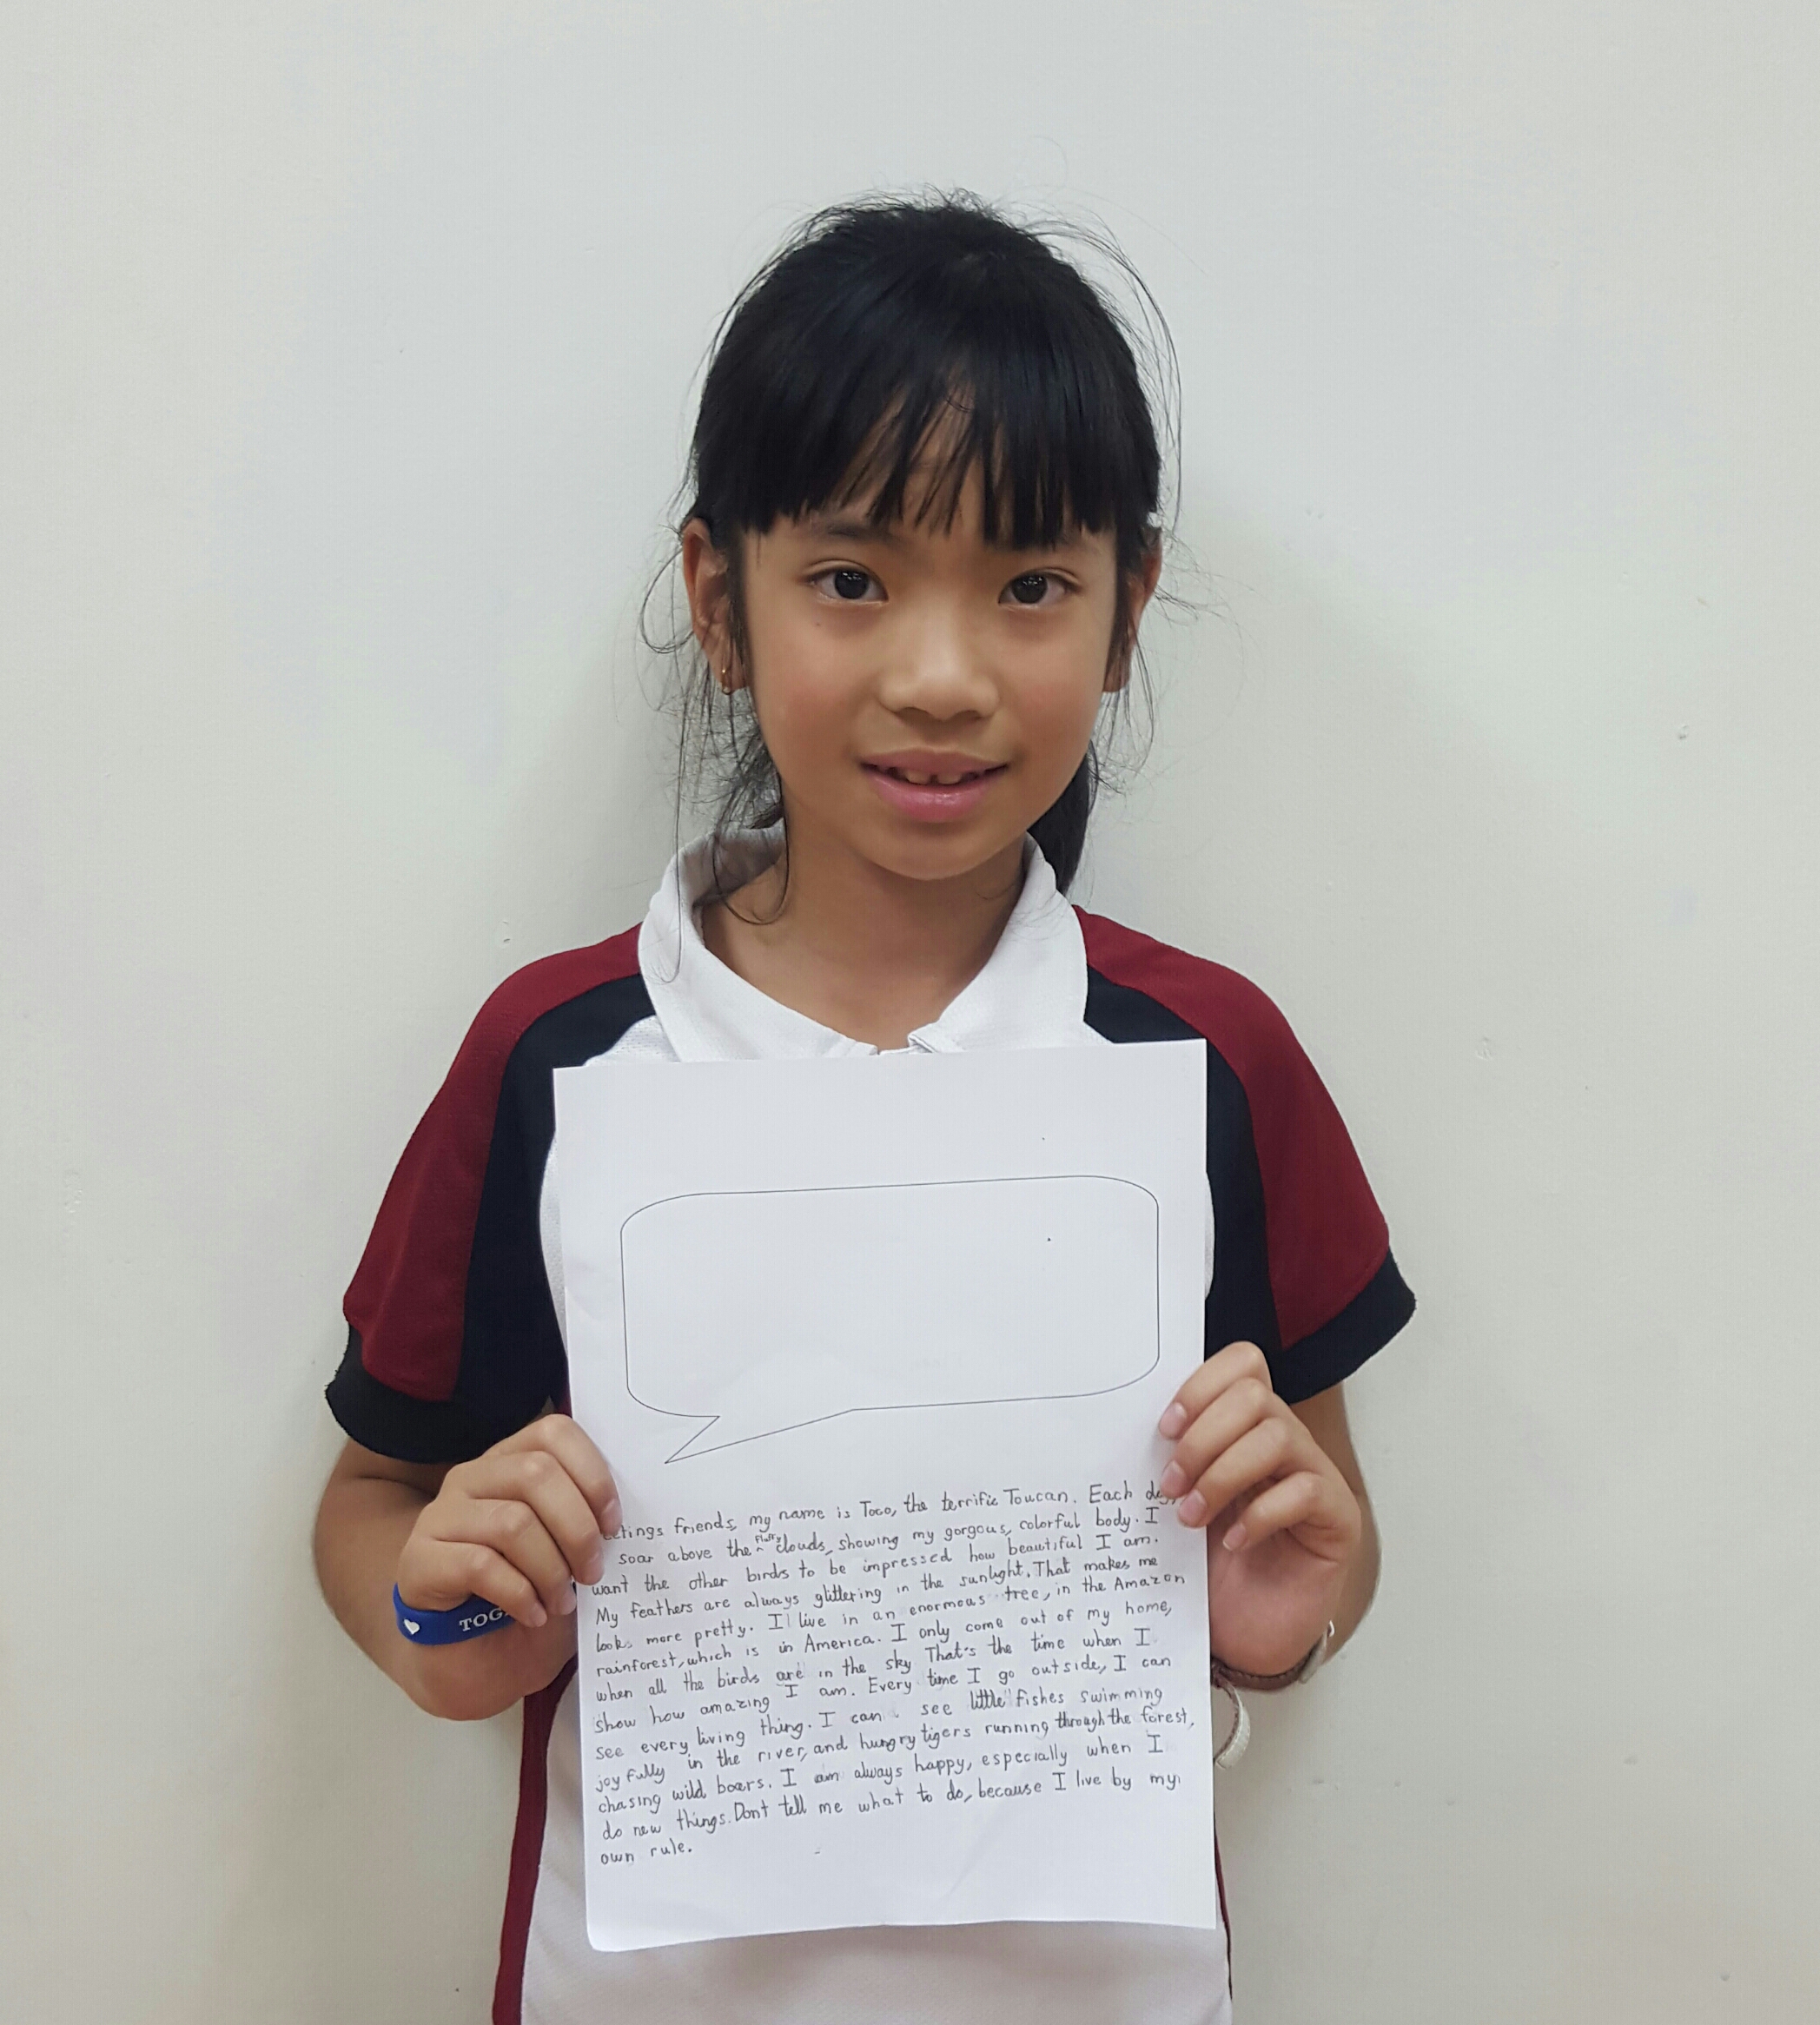 TOG
etings friends, my name is Toco, the terrific Toucan. Each day,
soar above the fluffy clouds, showing my gorgous, colorful body. I
want the other birds to be impressed how beautiful I am.
My feathers are always glittering in the sunlight. That makes me
look more pretty. I live in an enormous tree, in the Amazon
rainforest, which is in America. I only come out of my home,
when all the birds are in the sky That's the time when I
show how amazing I am. Every time I go outside, I can
see every living thing. I can see little fishes swimming
joyfully in the river, and hungry tigers running through the forest,
chasing wild boars. I am always happy, especially when I
do new things. Dont tell me what to do, because I live by my
own rule.